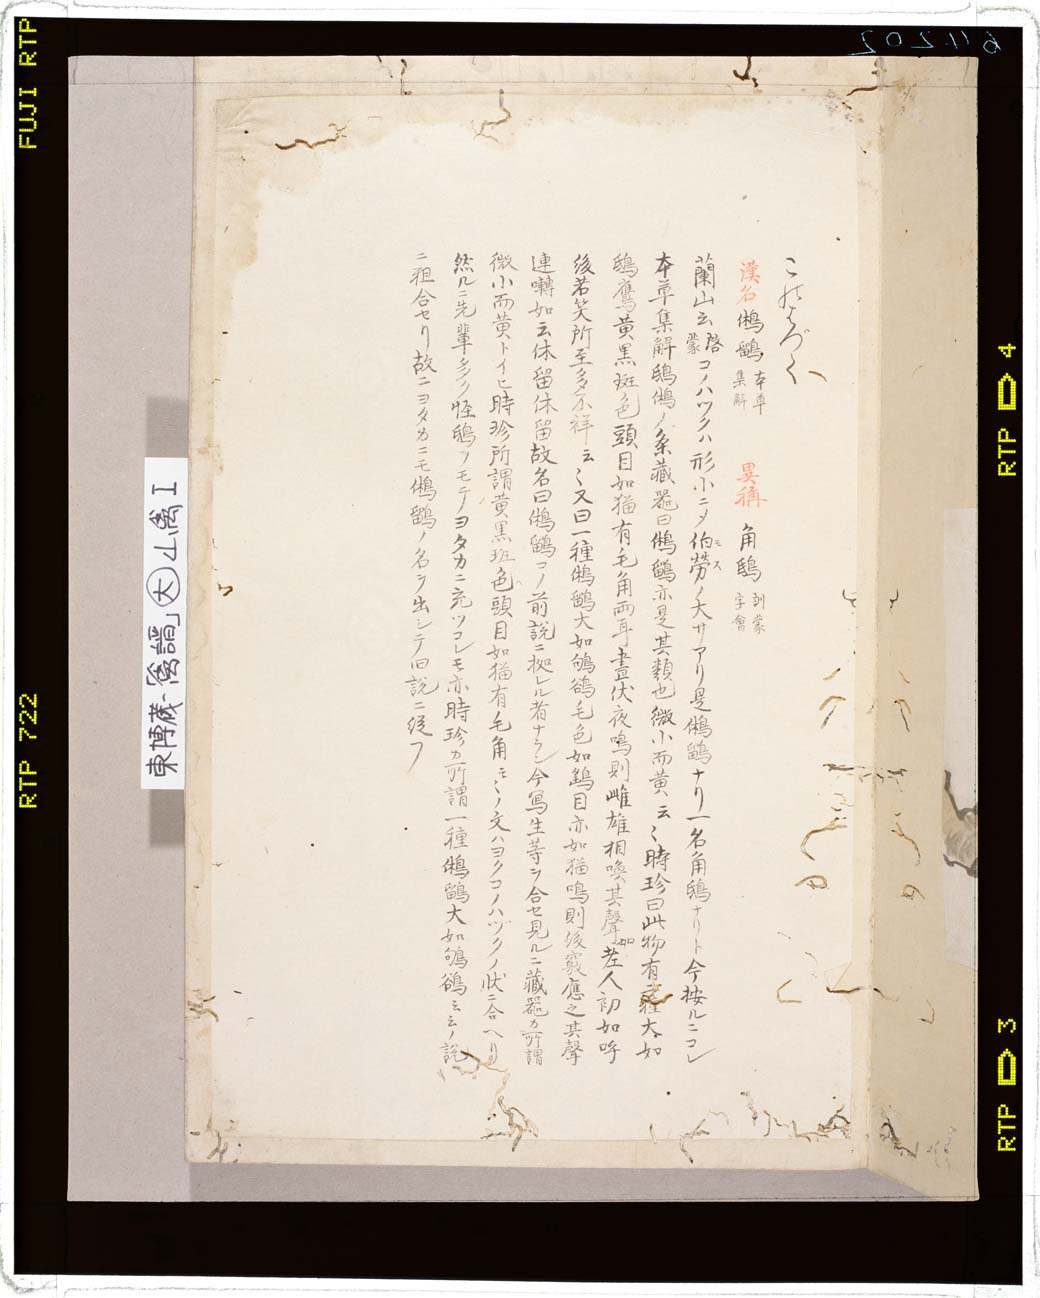 このはづく
漢名 鵂鶹 本草集解 異稱 角鴟 訓蒙字會
蘭山云 啓蒙 コノハツクハ形小ニメ伯勞ノ大サアリ是鵂鶹ナリ一名角鴟ナリト今按ルニコレ
モズ
本草集解鴟鵂ノ条藏器曰鵂鶹亦是其類也微小而黄云〻時珍曰此物有二種大如
鴟鷹黄黒斑色頭目如猫有毛角両耳晝伏夜鳴則雌雄相喚其聲如老人初如呼
後若笑所至多不祥云〻又曰一種鵂鶹大如鴝鵒毛色如鷂目亦如猫鳴則後竅應之其聲
連囀如云休留休留故名曰鵂鶹コノ前説ニ拠レル者ナラン今写生等ヲ合セ見ルニ藏器カ所謂
微小而黄トイヒ時珍所謂黄黒斑色頭目如猫有毛角云〻ノ文ハヨクコノハヅクノ状ニ合ヘリ
然ルニ先輩多ク怪鴟ヲモテヨタカニ充ツコレモ亦時珍カ所謂一種鵂鶹大如鴝鵒云云ノ説
ニ狙合セリ故ニヨタカニモ鵂鶹ノ名ヲ出シテ旧説ニ従フ
東博蔵「禽譜」大
64202
FUJI RTP
RTP 722
RTP 4
RTP 3